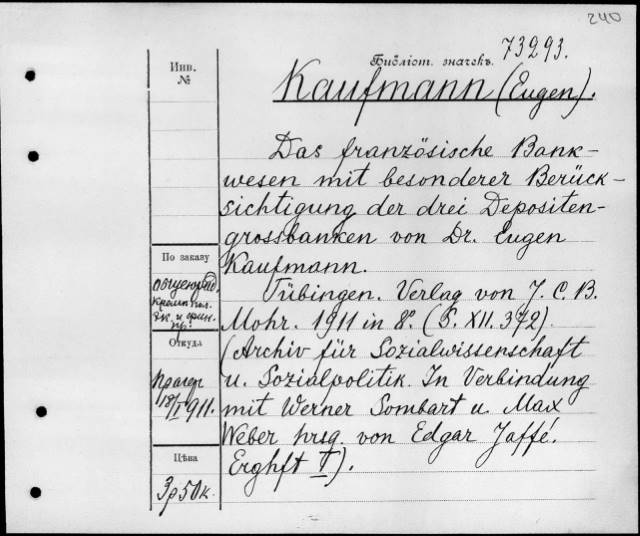 240
73293.
Библіот. значекъ.
Инв.
№
Kaufmann (Eugen).
Das französische Bank-
wesen mit besonderer Berück-
sichtigung der drei Depositen-
grossbanken von Dr. Eugen
Kaufmann.
Tübingen. Verlag von J. C. B.
Mohr. 1911 in 8°. (S. XII. 372).
(Archiv für Sozialwissenschaft
u. Sozialpolitik. In Verbindung
mit Werner Sombart u. Max
Weber hrsg. von Edgar Jaffé.
Erghft V).
По заказу
Откуда
Прагер
18/I 1911.
Цѣва
3р50к.